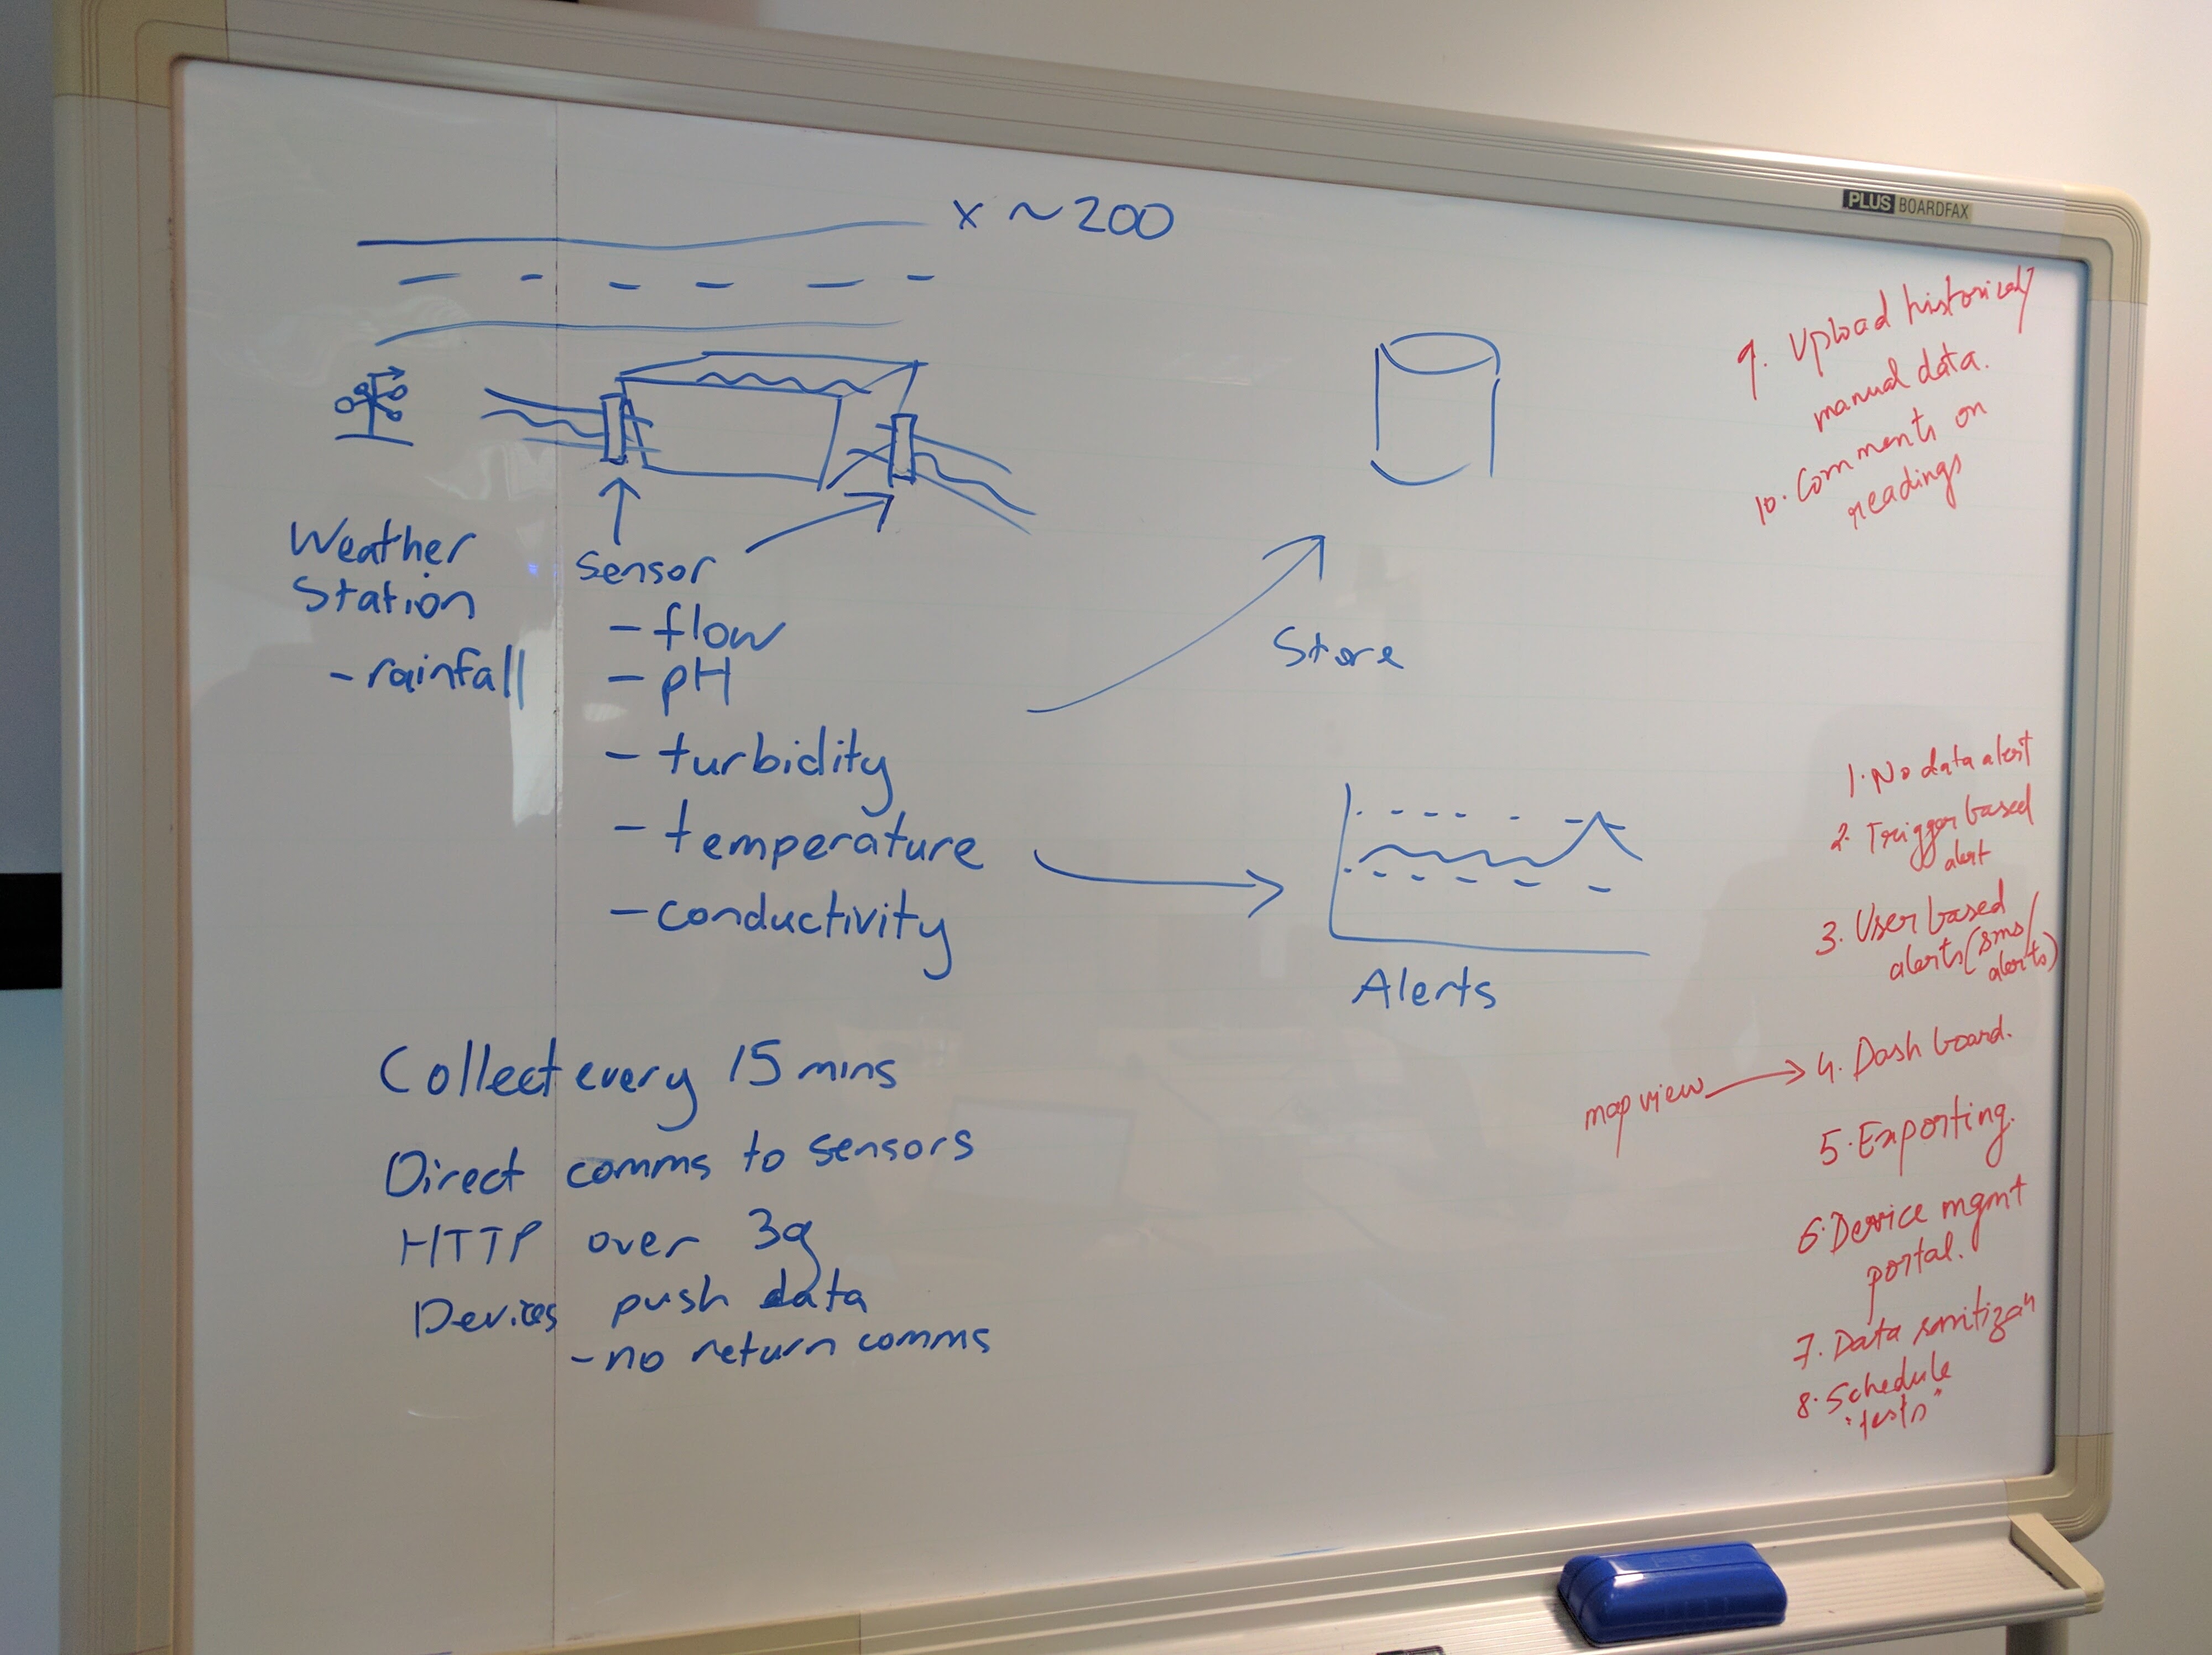 x ~200
PLUS BOARDFAX
Weather
Station
- rainfall
Sensor
- flow
- pH
- turbidity
- temperature
- conductivity
Collect every 15 mins
Direct comms to sensors
HTTP over 3g
Devices push data
- no return comms
Store
Alerts
9. Upload historical/
manual data.
10. Comments on
readings
1. No data alert
2. Trigger based
alert
3. User based
alerts (sms/
alerts)
map view
4. Dash board.
5. Exporting.
6. Device mgmt
portal.
7. Data
8. Schedule
"tests"